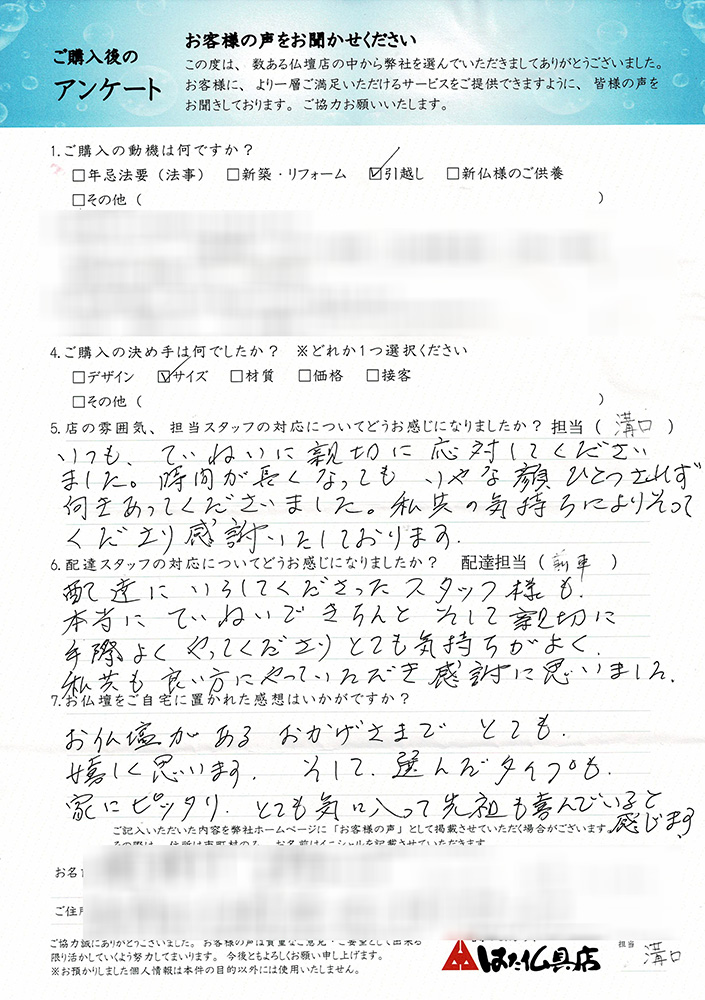 ご購入後の
アンケート
お客様の声をお聞かせください
この度は、数ある仏壇店の中から弊社を選んでいただきましてありがとうございました。
お客様に、より一層ご満足いただけるサービスをご提供できますように、皆様の声を
お聞きしております。ご協力お願いいたします。
1.ご購入の動機は何ですか?
□年忌法要(法事) □新築・リフォーム ☑引越し □新仏様のご供養
□その他( )
4.ご購入の決め手は何でしたか? ※どれか1つ選択ください
□デザイン ☑サイズ □材質 □価格 □接客
□その他( )
5.店の雰囲気、担当スタッフの対応についてどうお感じになりましたか?担当(溝口)
いつも、ていねいに親切に応対してください
ました。時間が長くなっても いやな顔ひとつされず
付きあってくださいました。私共の気持ちによりそって
くださり感謝いたしております。
6.配達スタッフの対応についてどうお感じになりましたか? 配達担当( )
配達にいらしてくださったスタッフ様も、
本当にていねいできちんと そして親切に
手際よくやってくださり とても気持ちがよく、
私共も良い方にやっていただき感謝に思いました。
7.お仏壇をご自宅に置かれた感想はいかがですか?
お仏壇がある おかげさまで とても、
嬉しく思います。 そして、選んだタイプも、
家にピッタリ、とても気に入って先祖も喜んでいると
感じます
ご記入いただいた内容を弊社ホームページに「お客様の声」として掲載させていただく場合がございます。
その際は、住所は市町村のみ、お名前はイニシャルを記載させていただきます。
お名
ご住
ご協力誠にありがとうございました。お客様の声は貴重なご意見・ご要望として出来る
限り活かしていくよう努力してまいります。今後ともよろしくお願い申し上げます。
※お預かりしました個人情報は本件の目的以外には使用いたしません。
はた仏具店
担当 溝口